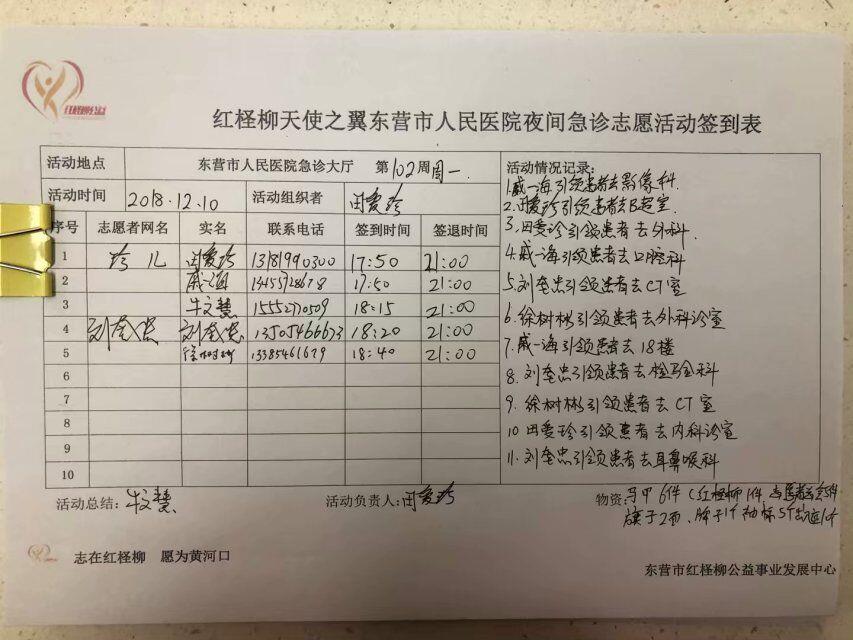 红柽柳公益
红柽柳天使之翼东营市人民医院夜间急诊志愿活动签到表
活动地点 东营市人民医院急诊大厅 第102周周一.
活动时间 2018.12.10 活动组织者 田爱珍
序号 志愿者网名 实名 联系电话 签到时间 签退时间
1 珍儿 田爱珍 13181990300 17:50 21:00
2 戚一海 17:50 21:00
3 牛文慧 15552770509 18:15 21:00
4 刘奎忠 刘奎忠 13505466673 18:20 21:00
5 徐树彬 13385461679 18:40 21:00
6
7
8
9
10
活动情况记录:
1.戚一海引领患者去影像科.
2.田爱珍引领患者去B超室.
3.田爱珍引领患者去外科.
4.戚一海引领患者去口腔科
5.刘奎忠引领患者去CT室
6.徐树彬引领患者去外科诊室
7.戚一海引领患者去18楼
8.刘奎忠引领患者去检验科
9.徐树彬引领患者去CT室
10田爱珍引领患者去内科诊室
11.刘奎忠引领患者去耳鼻喉科
活动总结: 牛文慧 活动负责人: 田爱珍 物资: 马甲6件(红柽柳1件
旗子2面、牌子1个袖标5个
志在红柽柳 愿为黄河口
东营市红柽柳公益事业发展中心